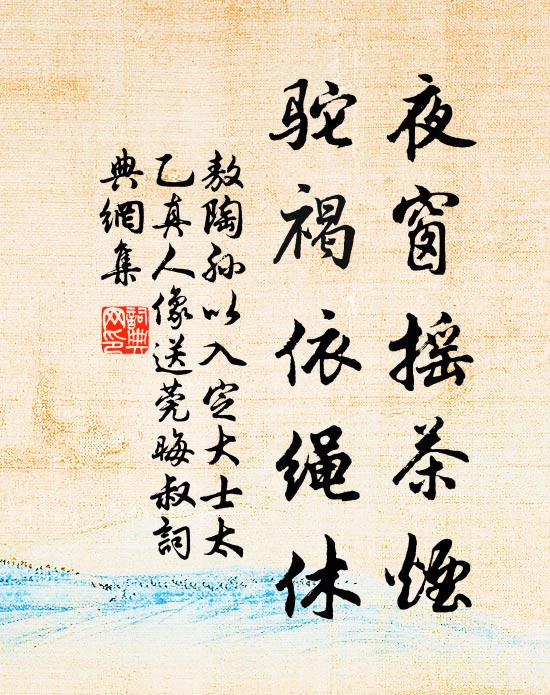 夜窗摇茶烟
驼褐依绳休
敖陶孙以入定大士太
乙真人像送莞晦叔词
典網集
詞典
网印